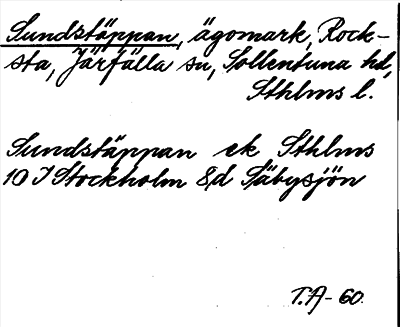 Sundstäppan, ägomark, Rock-
sta, Järfälla sn, Sollentuna hd,
Sthlms l.
Sundstäppan ek Sthlms
10 I Stockholm 8d Säbysjön
T.A-60.